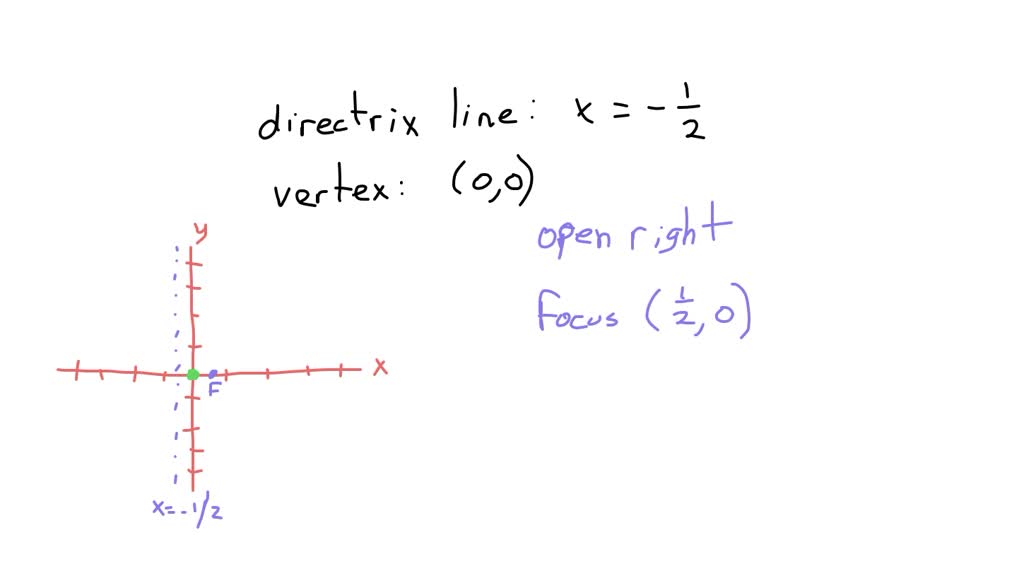 directrix line: x = -1/2
vertex: (0,0)
open right
focus (1/2, 0)
y
x
F
x=-1/2